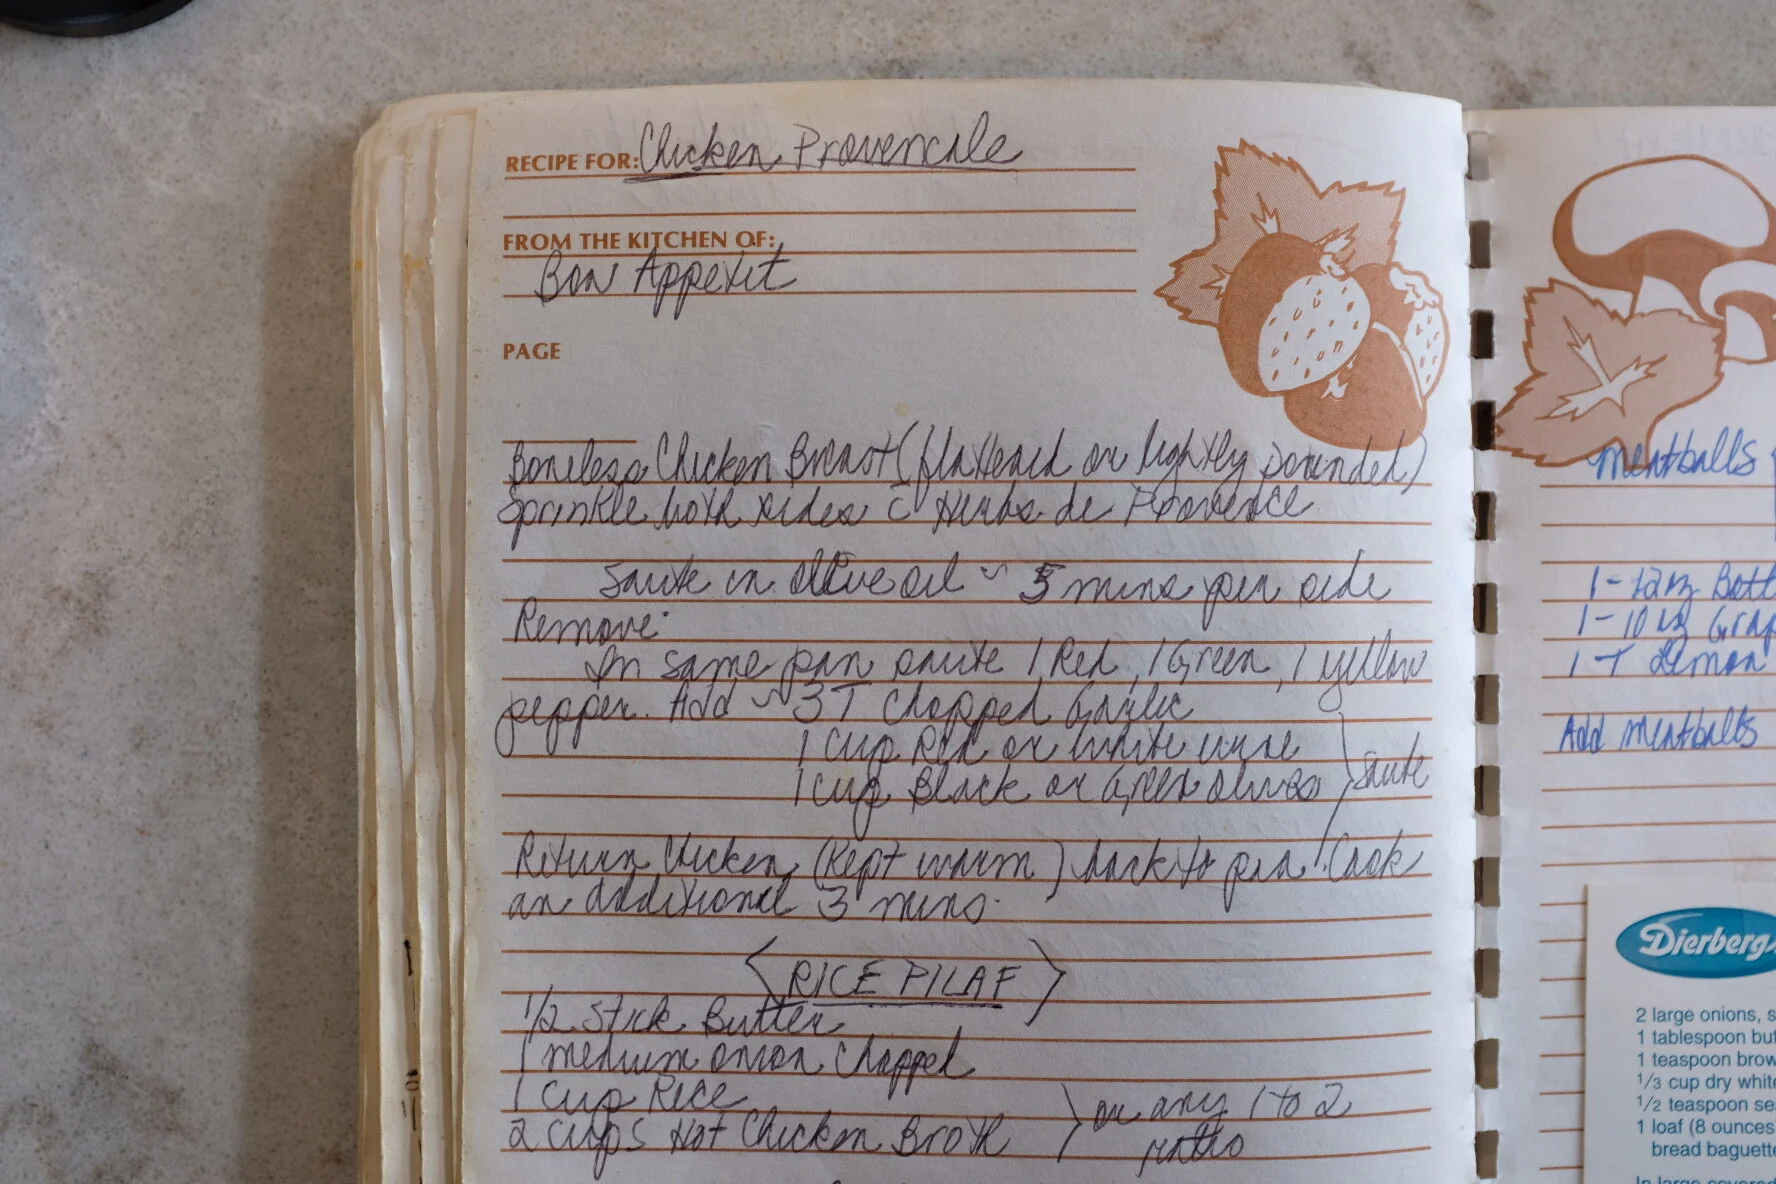 RECIPE FOR: Chicken Provencale
FROM THE KITCHEN OF:
Bon Appetit
PAGE
Boneless Chicken Breast (flattened or lightly pounded)
Sprinkle both sides c̄ Herbs de Provence
Saute in olive oil ~ 5 mins per side
Remove.
In same pan saute 1 Red, 1 Green, 1 yellow
pepper. Add ~ 3 T chopped Garlic
1 cup Red or white wine
1 cup Black or Green olives
Saute
Return Chicken (kept warm) back to pan. Cook
an additional 3 mins.
<RICE PILAF>
1/2 stick Butter
1 medium onion chopped
1 cup Rice
2 cups Hot Chicken Broth
or any 1 to 2
ratio
meatballs
1-12oz Bott
1-10 oz Grap
1 T Lemon
Add meatballs
Dierberg
2 large onions, s
1 tablespoon but
1 teaspoon brow
1/3 cup dry white
1/2 teaspoon se
1 loaf (8 ounces
bread baguette
In large covered